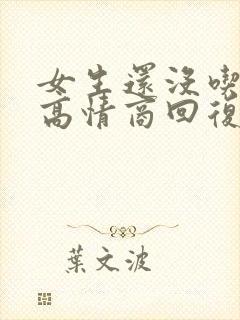 女生還沒喫
高情商回復
葉文波